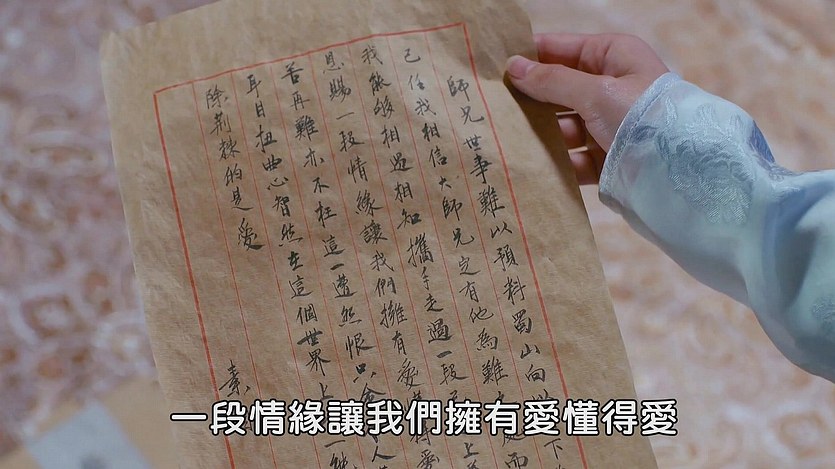 師兄世事難以預料蜀山向以下
己任我相信大師兄定有他為難處而
我能夠相遇相知攜手走過一段上
恩賜一段情緣讓我們擁有愛愛
苦再難亦不枉這一遭然恨只會人
耳目扭曲心智然在這個世界上一
除荊棘的是愛
素
一段情緣讓我們擁有愛懂得愛